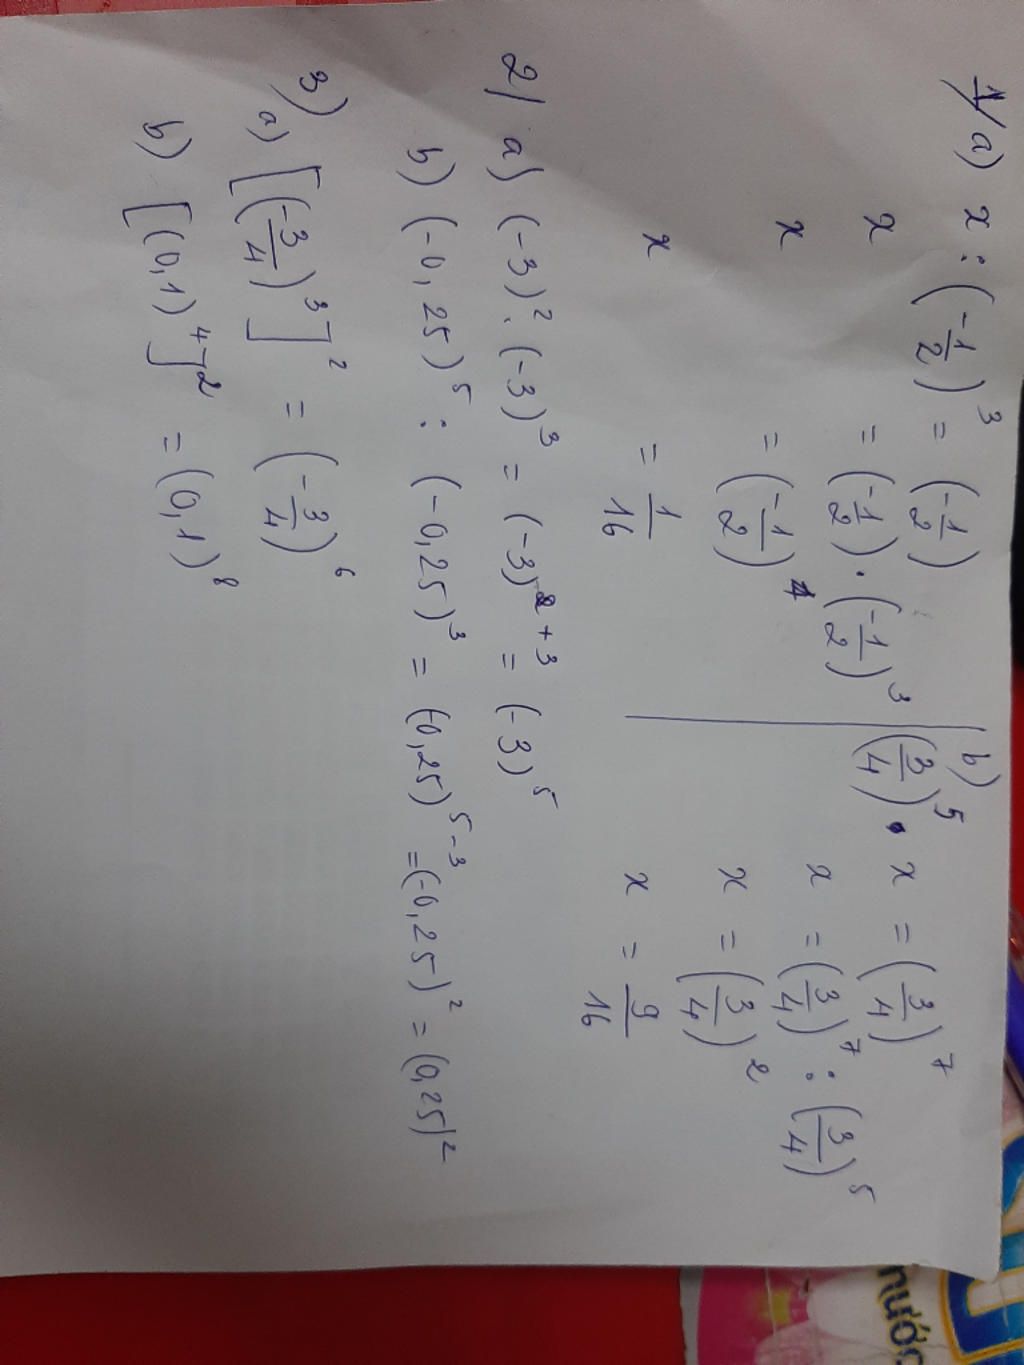 1/ a) x : (-1/2)³ = (-1/2)
x = (-1/2) . (-1/2)³
x = (-1/2)⁴
x = 1/16
b) (3/4)⁵ . x = (3/4)⁷
x = (3/4)⁷ : (3/4)⁵
x = (3/4)²
x = 9/16
2/ a) (-3)² . (-3)³ = (-3)²⁺³ = (-3)⁵
b) (-0,25)⁵ : (-0,25)³ = (-0,25)⁵⁻³ = (-0,25)² = (0,25)²
3) a) [(-3/4)³]² = (-3/4)⁶
b) [(0,1)⁴]² = (0,1)⁸
nước